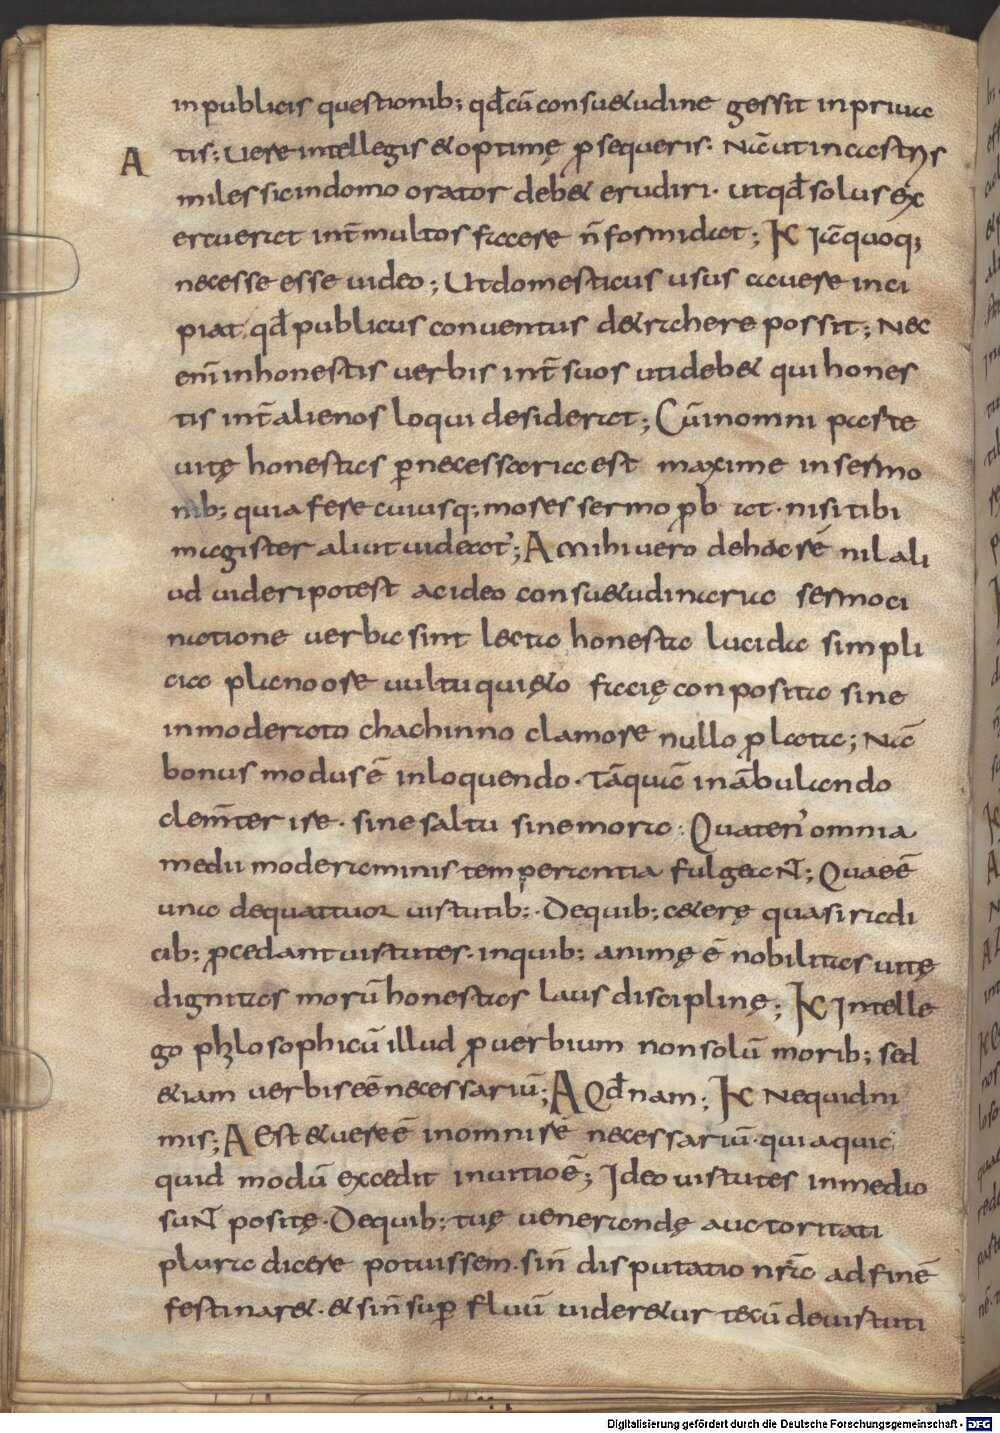 inpublicis questionib; qđcū consuetudine gessit inpriua
A tis; Uere intellegis &optimę ꝓsequeris. Nā ut incastris
miles sic in domo orator deb& erudiri. utqđ solus ex
ercuerat inť multos facere ñ formidat; K Id quoq;
necesse esse uideo; Utdomesticus usus auere inci
piat. qđ publicus conuentus d&rahere possit; Nec
eni̅ inhonestis uerbis inť suos uti deb& qui hones
tis inť alienos loqui desiderat; Cū inomni parte
uitę honestas ꝑnecessaria est maxime insermo
nib; quia fere cuiusq; mores sermo ꝓb at. nisi tibi
magister aliut uideat̉; A Mihi uero dehac rē nil ali
ud uideri potest ac ideo consu&udinaria sermoci
natione uerba sint lecta honesta lucida simpli
cia plano ore uultu qui&o facię conposita sine
inmoderato chachinno clamore nullo ꝓlata; Nā
bonus modus ē inloquendo. tāquā inābulando
clem̅ter ire. sine saltu sine mora. Quaten̉ omnia
medii moderaminis temperantia fulgeant; Quae ē
una dequattuor uirtutib;. Dequib; c&erę quasi radi
cib; ꝓcedant uirtutes. inquib; animę ē nobilitas uitę
dignitas morū honestas laus disciplinę; K Intelle
go philosophicū illud ꝓuerbium non solū morib; sed
&iam uerbis eē necessariū; A Qđnam; K Nequid ni
mis; A Est &uere ē inomni rē necessariū. quia quic
quid modū excedit inuitio ē; Ideo uirtutes inmedio
sunt positę. Dequib; tuę uenerandę auctoritati
plura dicere potuissem. sin̄ disputatio nr̄a adfinē
festinar&. &sin̄ suꝑfluū uider&ur tecū deuirtuti